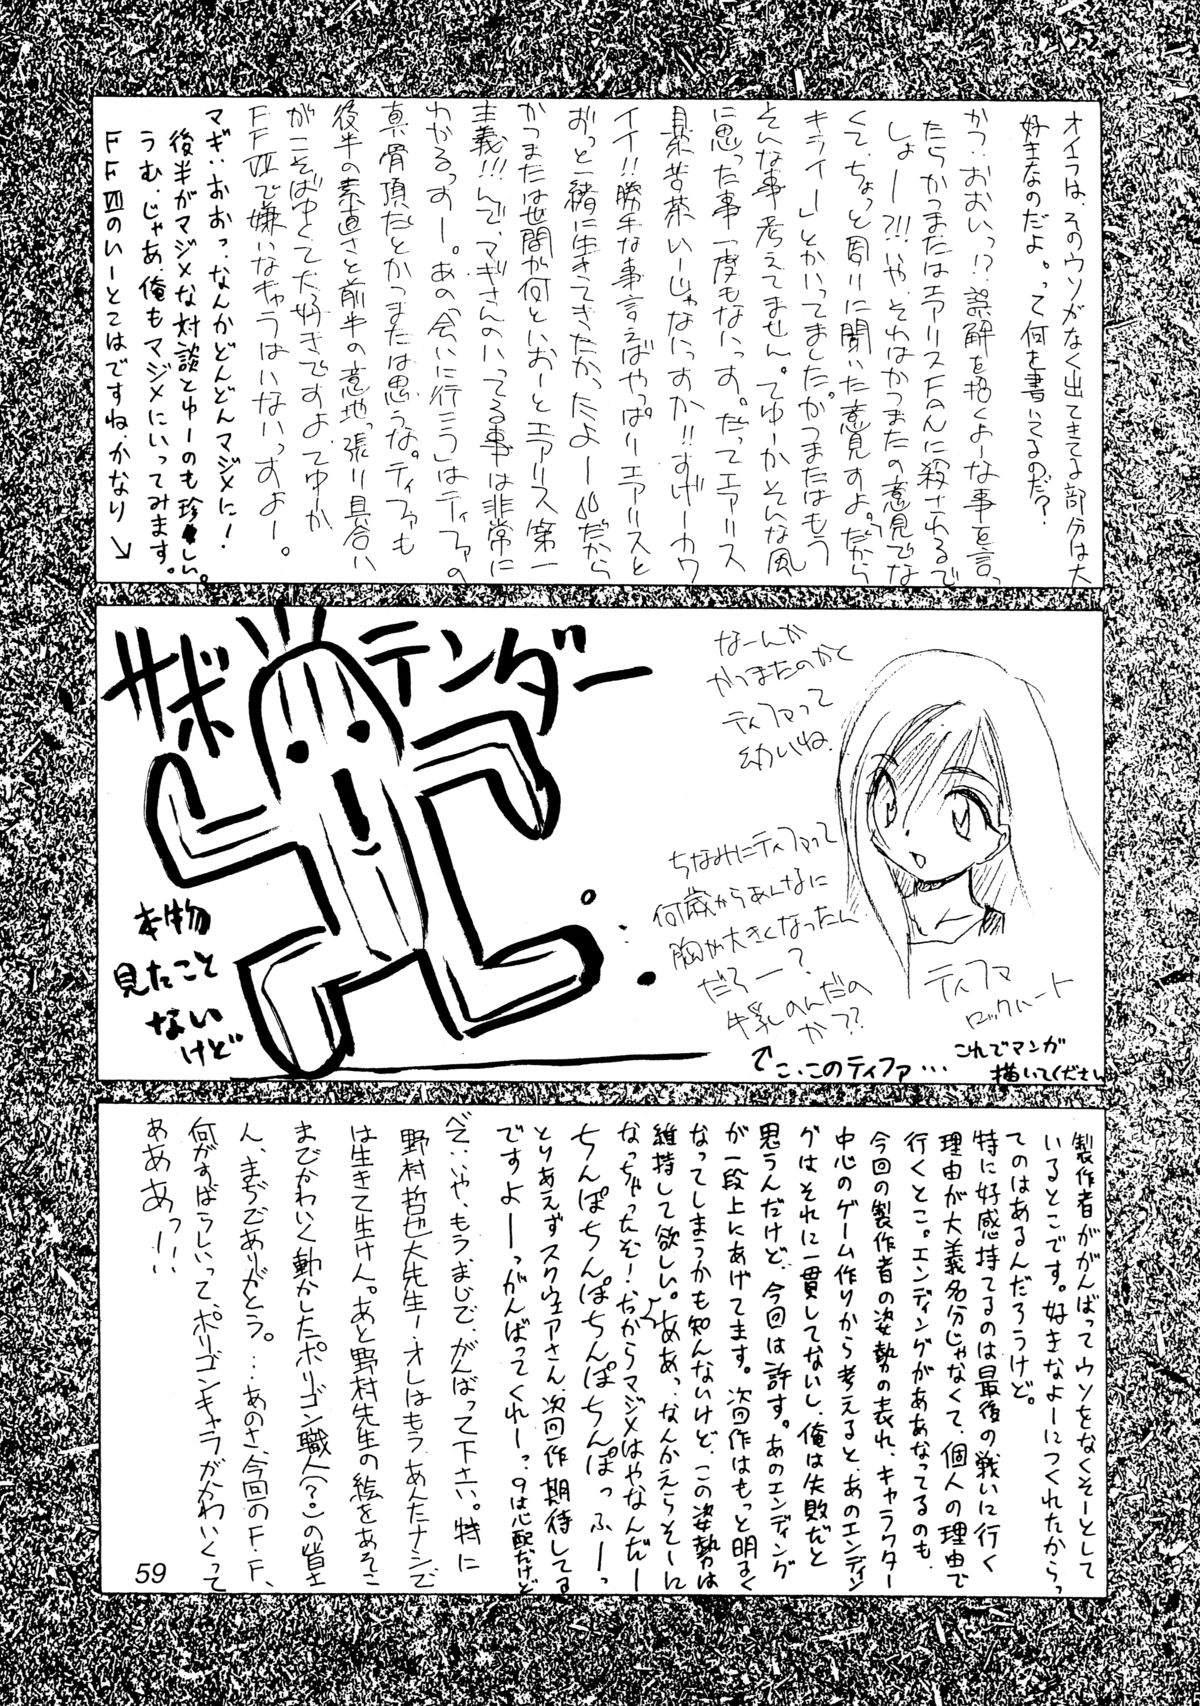 オイラは、そのウソがなく出てきてる部分は大
好きなのだよ。って何を書いてるのだ？
かつ：おおいっ!? 誤解を招くよーな事を言っ
たらかつまたはエアリスFanに殺されるで
しょー?!!いや、それはかつまたの意見でな
くて、ちょっと周りに聞いた意見すよ。だから
キライー」とかいってましたが。かつまたはもう
そんな事考えてません。てゆーかそんな風
に思った事一度もないっす。だってエアリス
最
イイ!!勝手な事言えばやっぱーりエアリスと
おっと一緒に生きてきたかったよー だから
かつまたは世間が何といおーとエアリス第一
主義!!!んで、マギさんのいってる事は非常に
わかるっすー。あの「会いに行こう」はティファの
真骨頂だとかつまたは思うな。ティファも
後半の素直さと前半の意地っ張り具合い
がこそばゆくて大好きですよ。てゆーか
FFⅦで嫌いなキャラはいないっすよー。
マギ：おおっ、なんかどんどんマジメに！
後半がマジメな対談とゆーのも珍しい。
うむ、じゃあ、俺もマジメにいってみます。
FFⅦのいーとこはですね、かなり
サボテンダー
本物
見たこと
ないけど
なーんか
かつまたのかく
ティファって
幼いね
ちなみにティファって
何歳からあんなに
胸が大きくなったん
だろー？
牛乳のんだの
か??
こ、このティファ…
ティファ
ロックハート
これでマンガ
描いてください
製作者ががんばってウソをなくそーとして
いるとこです。好きなよーにつくれたからっ
てのはあるんだろうけど。
特に好感持てるのは最後の戦いに行く
理由が大義名分じゃなくて、個人の理由で
行くとこ。エンディングがああなってるのも、
今回の製作者の姿勢の表れ、キャラクター
中心のゲーム作りから考えると、あのエンディン
グはそれに一貫してないし、俺は失敗だと
思うんだけど、今回は許す。あのエンディング
が一段上にあげてます。次回作はもっと明るく
なってしまうかも知んないけど、この姿勢は
維持して欲しい。ああっ、なんかえらそーに
なっちゃったぞ！だからマジメはやなんだー
ちんぽちんぽちんぽちんぽっ ふーっ
とりあえずスクウェアさん、次回作期待してる
ですよーーっがんばってくれーっ。9は心配だけど
べ：いや、もう、まじで、がんばって下さい。特に
野村哲也大先生ー、オレはもう、あんたナシで
は生きて生けん。あと野村先生の絵をあそこ
までかわいく動かしたポリゴン職人（？）の皆さ
ん、まぢでありがとう。…あのさ、今回のF.F、
何がすばらしいって、ポリゴンキャラがかわいくって
ああああっ!!
59